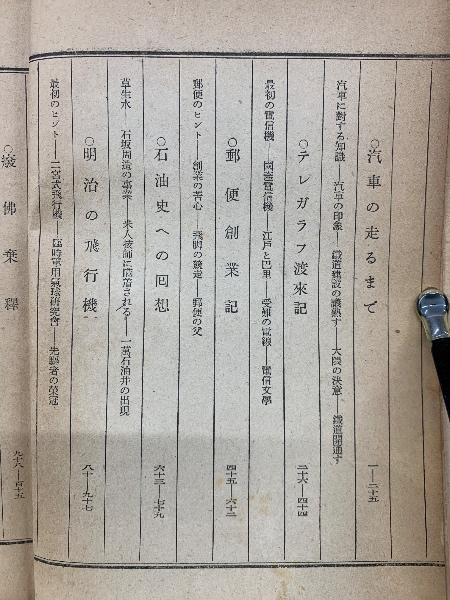 ○汽車の走るまで 一―二十五
汽車に對する知識――汽車の印象――鐵道建設の議熟す――大隈の決意――鐵道開通す
○テレガラフ渡來記 二十六―四十四
最初の電信機――國産電信機――江戸と巴里――受難の電線――電信文學
○郵便創業記 四十五―六十二
郵便のヒント――創業の苦心――飛脚の競走――郵便の父
○石油史への回想 六十三―七十九
草生水――石坂周造の事業――米人技師に陥落される――一萬石油井の出現
○明治の飛行機 八十―九十七
最初のヒント――二宮式飛行機――臨時軍用氣球硏究會――先驅者の榮冠
○癈佛棄釋 九十八―百十五